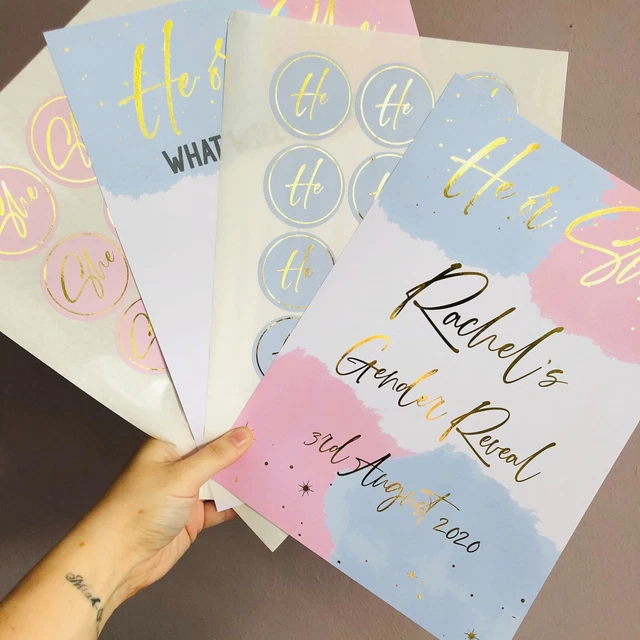 She
She
She
He or
WHAT
He
He
He
He
He or
Rachel's
Gender Reveal
3rd August 2020